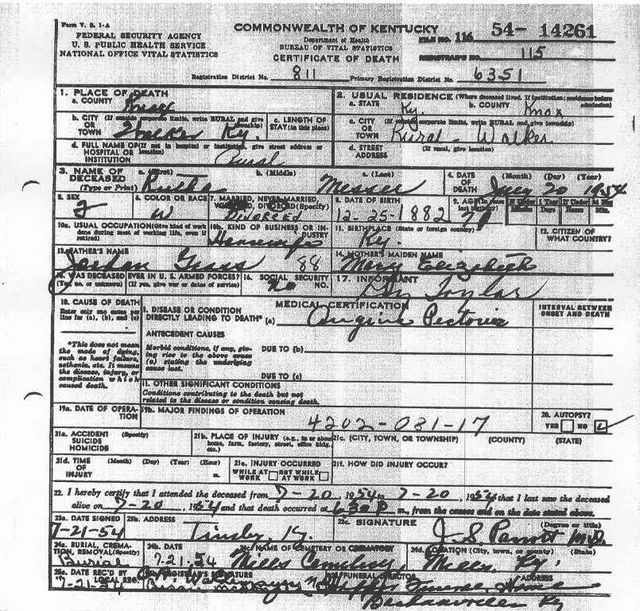 Form V. S. 1-A
COMMONWEALTH OF KENTUCKY
FEDERAL SECURITY AGENCY
U. S. PUBLIC HEALTH SERVICE
NATIONAL OFFICE VITAL STATISTICS
Department of Health
BUREAU OF VITAL STATISTICS
CERTIFICATE OF DEATH
FILE NO. 116 54- 14261
REGISTRAR'S NO. 115
Registration District No. 811 Primary Registration District No. 6351
1. PLACE OF DEATH
a. COUNTY Knox
2. USUAL RESIDENCE (Where deceased lived. If institution: residence before
a. STATE Ky b. COUNTY Knox
b. CITY OR TOWN Walker Ky. c. LENGTH OF STAY (in this place)
c. CITY OR TOWN Rural - Walker
d. FULL NAME OF HOSPITAL OR INSTITUTION (If not in hospital or institution, give street address or location) Rural
d. STREET ADDRESS (If rural, give location)
3. NAME OF DECEASED (Type or Print) a. (First) b. (Middle) Messer c. (Last)
4. DATE OF DEATH (Month) (Day) (Year) July 20 1954
5. SEX F 6. COLOR OR RACE W 7. MARRIED, NEVER MARRIED, WIDOWED, DIVORCED (Specify) DIVORCED
8. DATE OF BIRTH 12-25-1882
10a. USUAL OCCUPATION (Give kind of work done during most of working life, even if retired)
10b. KIND OF BUSINESS OR INDUSTRY Housewife
11. BIRTHPLACE (State or foreign country) Ky.
12. CITIZEN OF WHAT COUNTRY?
13. FATHER'S NAME 88
14. MOTHER'S MAIDEN NAME Mary Elizabeth
15. WAS DECEASED EVER IN U. S. ARMED FORCES? (Yes, no, or unknown) (If yes, give war or dates of service)
16. SOCIAL SECURITY NO. No
17. INFORMANT Taylor
18. CAUSE OF DEATH
Enter only one cause per line for (a), (b), and (c)
MEDICAL CERTIFICATION
INTERVAL BETWEEN ONSET AND DEATH
I. DISEASE OR CONDITION DIRECTLY LEADING TO DEATH* (a) Angina Pectoris
*This does not mean the mode of dying, such as heart failure, asthenia, etc. It means the disease, injury, or complication which caused death.
ANTECEDENT CAUSES
Morbid conditions, if any, giving rise to the above cause (a) stating the underlying cause last.
DUE TO (b)
DUE TO (c)
II. OTHER SIGNIFICANT CONDITIONS
Conditions contributing to the death but not related to the disease or condition causing death.
19a. DATE OF OPERATION 19b. MAJOR FINDINGS OF OPERATION
4202-081-17
20. AUTOPSY?
YES NO
21a. ACCIDENT SUICIDE HOMICIDE (Specify)
21b. PLACE OF INJURY (e.g., in or about home, farm, factory, street, office bldg., etc.)
21c. (CITY, TOWN, OR TOWNSHIP) (COUNTY) (STATE)
21d. TIME OF INJURY (Month) (Day) (Year) (Hour) m.
21e. INJURY OCCURRED WHILE AT WORK NOT WHILE AT WORK
21f. HOW DID INJURY OCCUR?
22. I hereby certify that I attended the deceased from 7-20, 1954, to 7-20, 1954 that I last saw the deceased
alive on 7-20, 1954 and that death occurred at 6:30 P m., from the causes and on the date stated above.
23a. DATE SIGNED 7-21-54 23b. ADDRESS Tinsley, Ky. 23c. SIGNATURE J. S. Parrott M.D. (Degree or title)
24a. BURIAL, CREMATION, REMOVAL (Specify) Burial 24b. DATE 7-21-54 24c. NAME OF CEMETERY OR CREMATORY Mills Cemetery 24d. LOCATION (City, town, or county) (State) Mills, Ky.
25a. DATE REC'D BY LOCAL REG. 7-21-54 REGISTRAR'S SIGNATURE FUNERAL DIRECTOR Funeral Home
Barbourville Ky